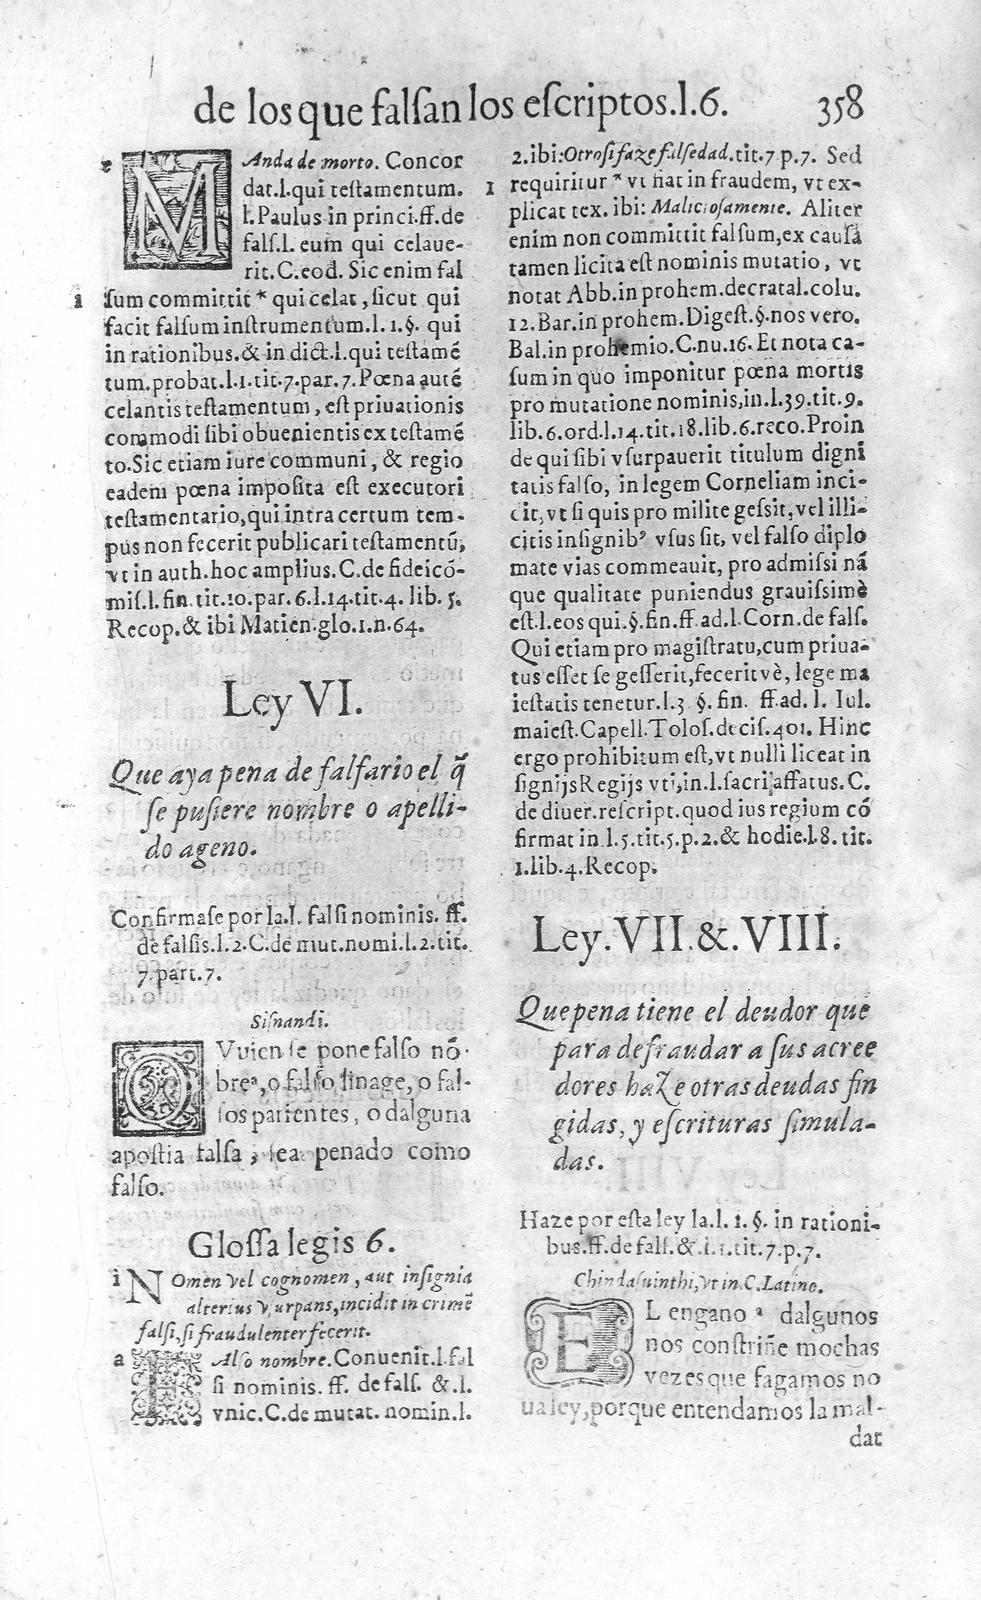 de los que falſan los eſcriptos.l.6. 358
e MAnda de morto. Concor
dat.l.qui teſtamentum.
l.Paulus in princi.ff.de
falſ.l. eum qui celaue-
rit.C.eod. Sic enim fal
1 ſum committit * qui celat, ſicut qui
facit falſum inſtrumentum.l.1.§. qui
in rationibus.& in dict.l.qui teſtamē
tum.probat.l.1.tit.7.par.7.Pœna autē
celantis teſtamentum, eſt priuationis
commodi ſibi obuenientis ex teſtamē
to.Sic etiam iure communi, & regio
eadem pœna impoſita eſt executori
teſtamentario,qui intra certum tem-
pus non fecerit publicari teſtamentū,
vt in auth.hoc amplius.C.de fideicō-
miſ.l.fin.tit.10.par.6.l.14.tit.4. lib.5.
Recop.& ibi Matien.glo.1.n.64.
Ley VI.
Que aya pena de falſario el q̃
ſe puſiere nombre o apelli-
do ageno.
Confirmaſe por la.l. falſi nominis. ff.
de falſis.l.2.C.de mut.nomi.l.2.tit.
7.part.7.
Siſnandi.
QVuien ſe pone falſo nō-
breª, o falſo linage, o fal-
ſos parientes, o dalguna
apoſtia falſa, ſea penado como
falſo.
Gloſſa legis 6.
1 NOmen vel cognomen, aut inſignia
alterius vſurpans,incidit in crimē
falſi,ſi fraudulenter fecerit.
a FAlſo nombre.Conuenit.l.fal
ſi nominis. ff. de falſ. &.l.
vnic.C.de mutat. nomin.l.
2.ibi:Otroſi faze falſedad.tit.7.p.7. Sed
1 requiritur * vt fiat in fraudem, vt ex-
plicat tex. ibi: Malicioſamente. Aliter
enim non committit falſum,ex cauſa
tamen licita eſt nominis mutatio, vt
notat Abb.in prohem.decretal.colu.
12.Bar.in prohem.Digeſt.§.nos vero.
Bal.in prohemio.C.nu.16. Et nota ca-
ſum in quo imponitur pœna mortis
pro mutatione nominis,in.l.39.tit.9.
lib.6.ord.l.14.tit.18.lib.6.reco.Proin
de qui ſibi vſurpauerit titulum digni
tatis falſo, in legem Corneliam inci-
cit, vt ſi quis pro milite geſſit, vel illi-
citis inſignibꝰ vſus ſit, vel falſo diplo
mate vias commeauit, pro admiſſi nā
que qualitate puniendus grauiſsimè
eſt.l.eos qui.§.fin.ff.ad.l.Corn.de falſ.
Qui etiam pro magiſtratu,cum priua-
tus eſſet ſe geſſerit,fecerit vè, lege ma
ieſtatis tenetur.l.3 §. fin. ff.ad. l. Iul.
maieſt.Capell.Toloſ.deciſ.401. Hinc
ergo prohibitum eſt,vt nulli liceat in
ſignijs Regijs vti,in.l.ſacri affatus. C.
de diuer.reſcript.quod ius regium cō
firmat in l.5.tit.5.p.2.& hodie.l.8. tit.
1.lib.4.Recop.
Ley.VII.&.VIII.
Que pena tiene el deudor que
para defraudar a ſus acree
dores haze otras deudas fin
gidas, y eſcrituras ſimula-
das.
Haze por eſta ley la.l. 1. §. in rationi-
bus.ff.de falſ.&.l.1.tit.7.p.7.
Chindaſuinthi,vt in C.Latino.
EL engano ª dalgunos
nos conſtriñe mochas
vezes que fagamos no
ua ley,porque entendamos la mal-
dat